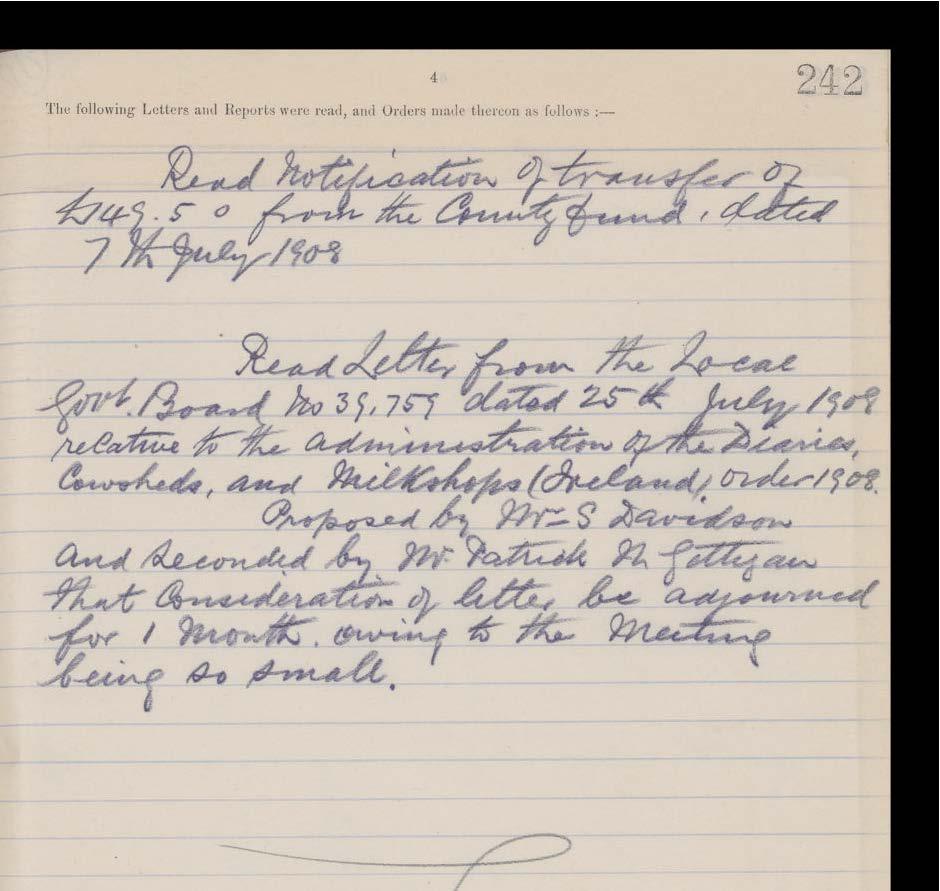 4
242
The following Letters and Reports were read, and Orders made thereon as follows :—
Read Notification of transfer of
£149. 5 0 from the County fund, dated
7th July 1908
Read Letter from the Local
Govt. Board No 39,759 dated 25th July 1908
relative to the administration of the Diaries,
Cowsheds, and Milkshops (Ireland) order 1908.
Proposed by Mrs S Davidson
and seconded by Mr Patrick
that Consideration of letter be adjourned
for 1 Month. owing to the Meeting
being so small.